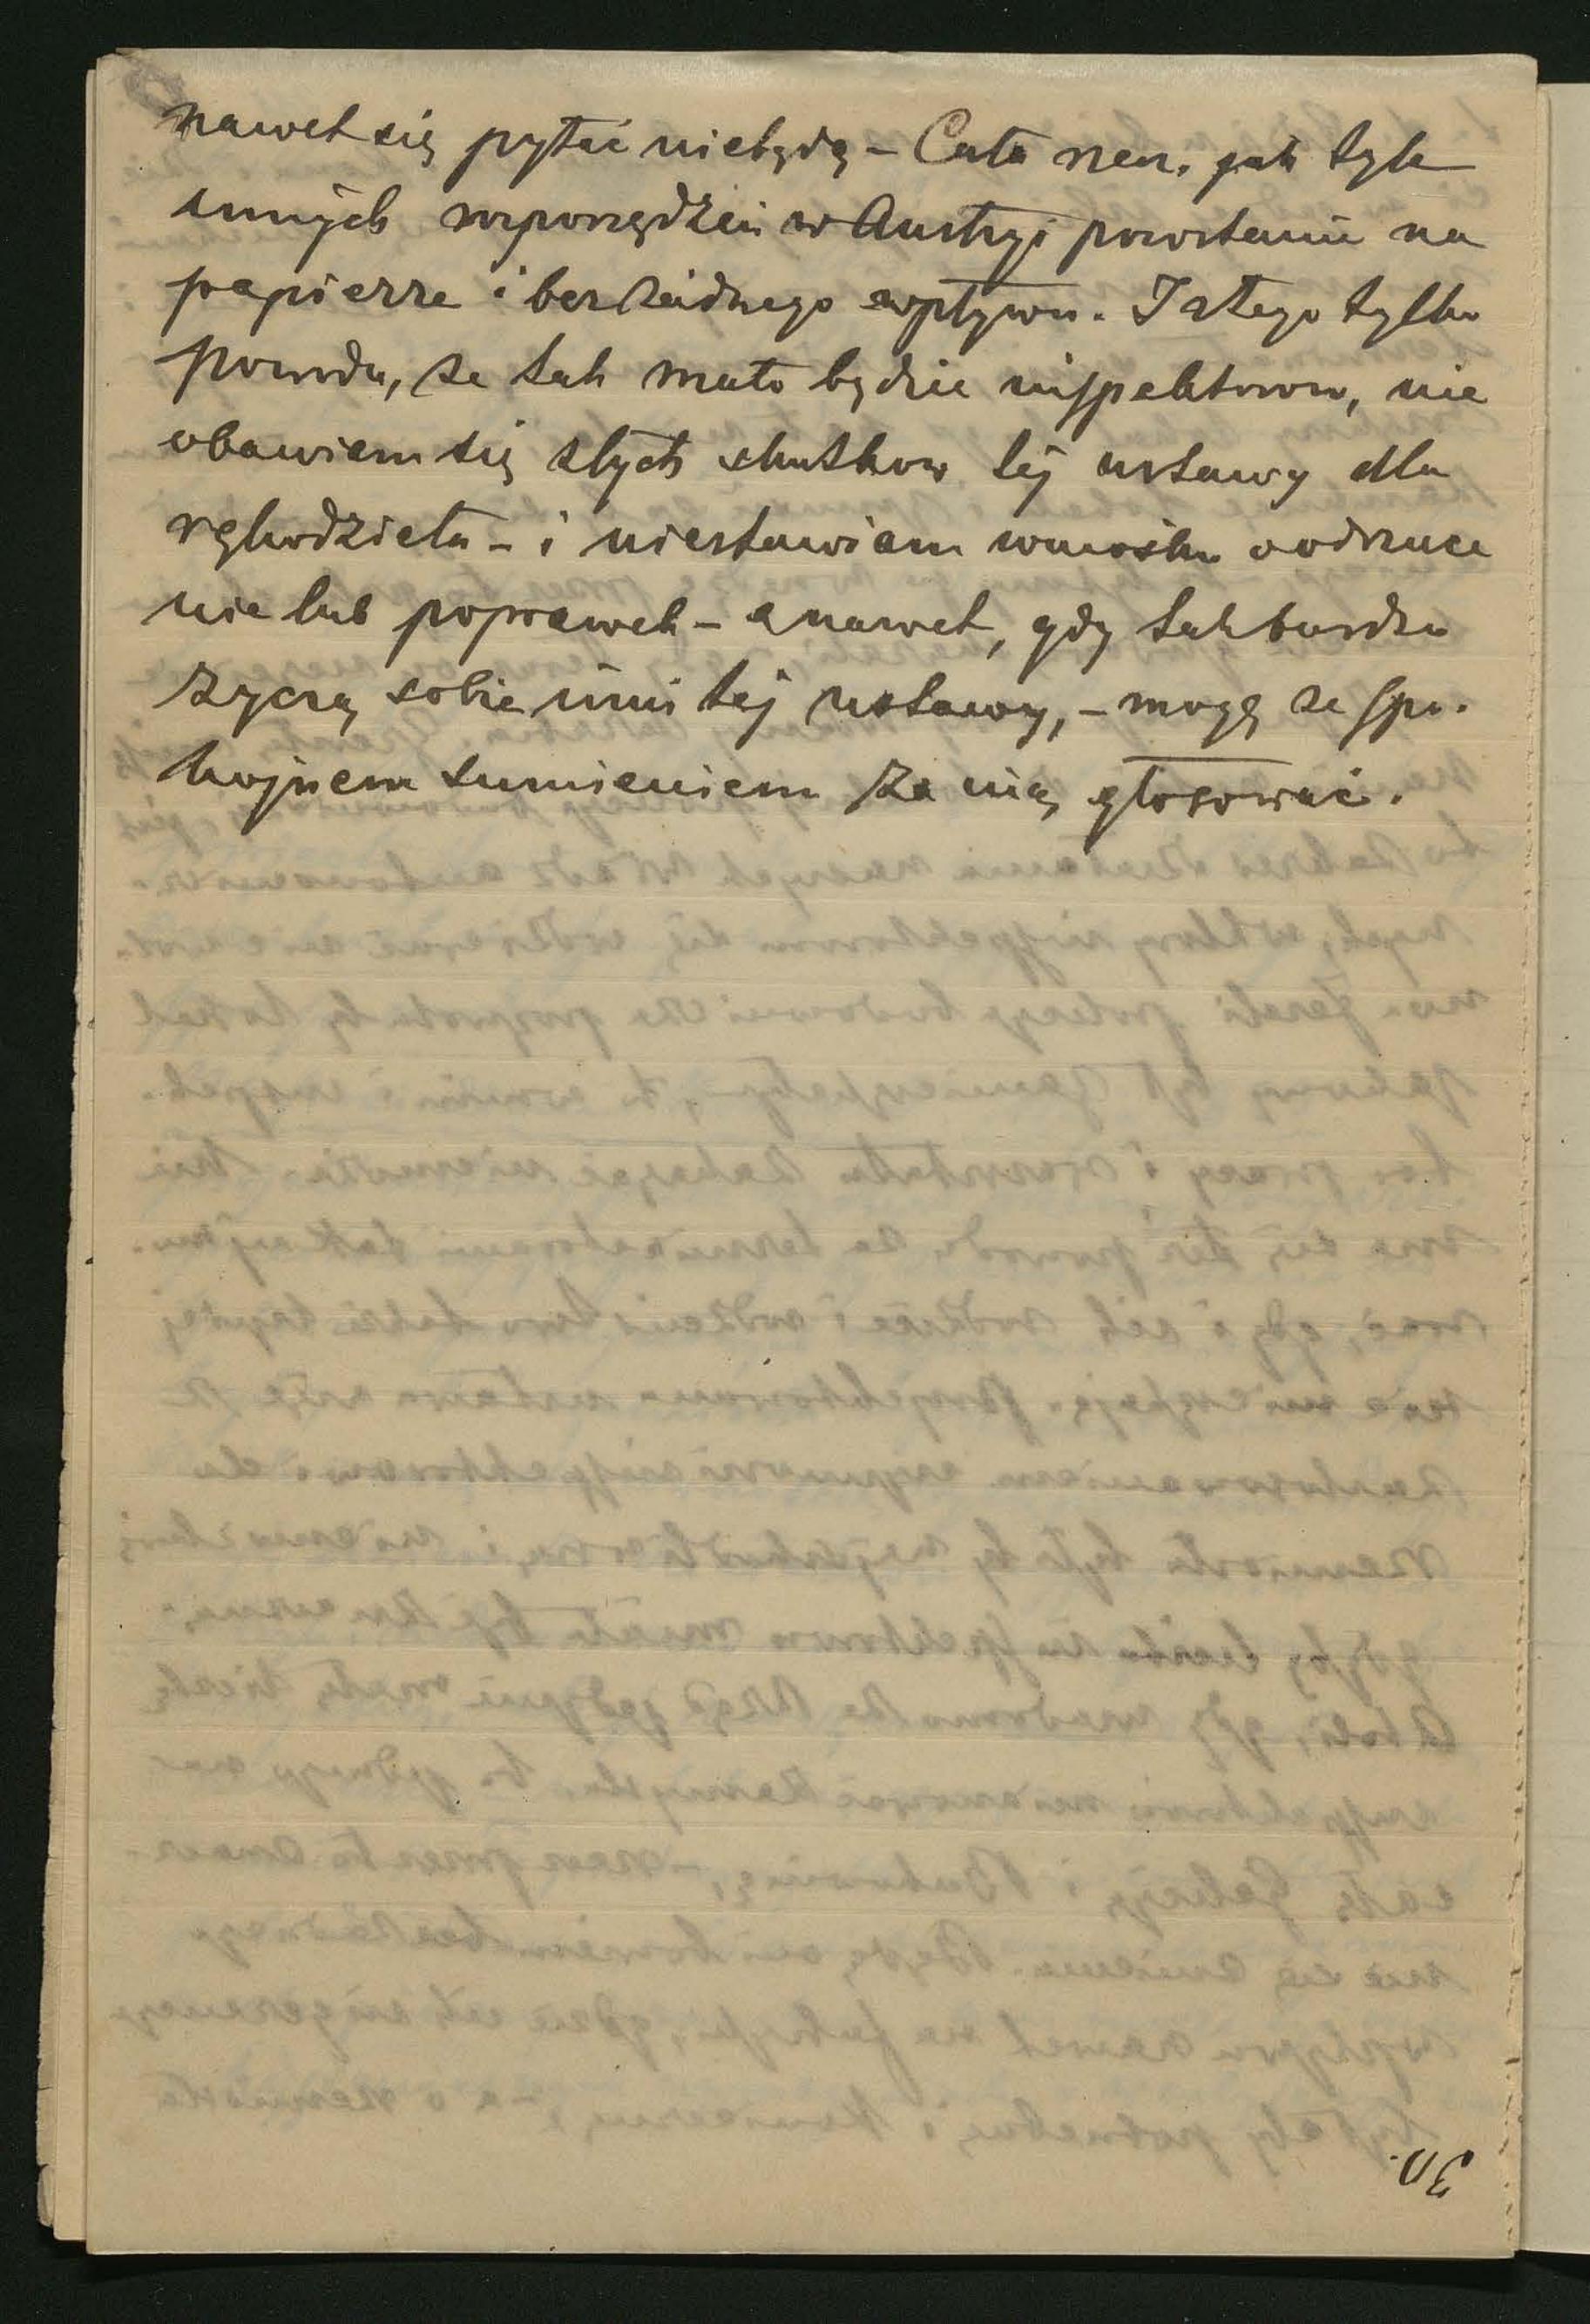 nawet się pytać niebędą – Cała rzecz, jak tyle
innych rozporządzeń w Austryi pozostanie na
papierze i bez żadnego wpływu. I z tego tylko
powodu, że tak mało będzie inspektorow, nie
obawiam się złych skutkow tej ustawy dla
rękodzieła – i niestawiam wniosku o odrzuce
nie lub poprawek – a nawet, gdy tak bardzo
życzą sobie inni tej ustawy, – mogę ze spo-
kojnem sumieniem za nią głosować.